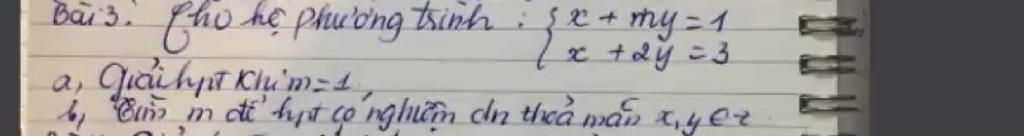 Bài 3. Cho hệ phương trình : { x + my = 1
x + 2y = 3
a, Giải hpt khi m = 1.
b, Tìm m để hpt có nghiệm dn thoả mãn x, y ∈ z